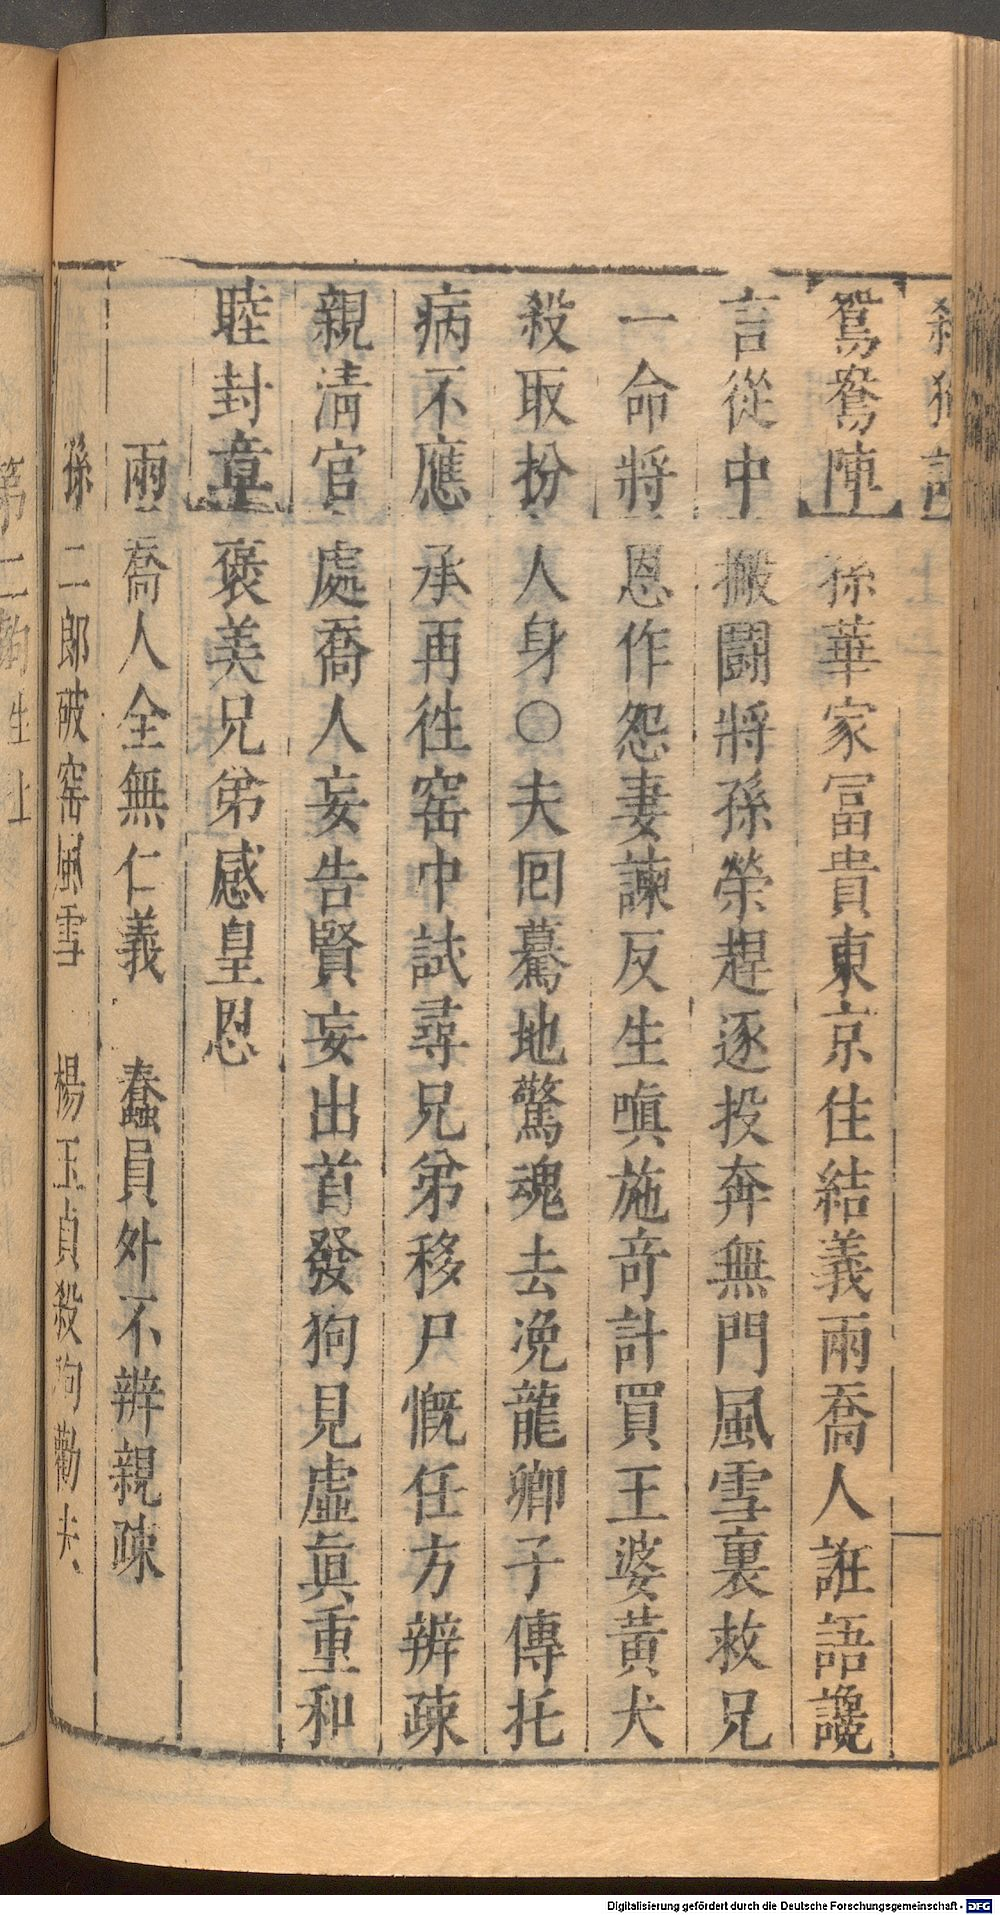 殺狗記
鴛鴦陣 孫華家冨貴東京住結義兩喬人誑語讒
言從中搬鬪將孫榮趕逐投奔無門風雪裏救兄
一命將恩作怨妻諫反生嗔施竒計買王婆黃犬
殺取扮人身〇夫囘驀地驚魂去凂龍卿子傳托
病不應承再徃窑中試尋兄弟移尸慨任方辨疎
親淸官處喬人妄告賢妄出首發狗見虛眞重和
睦封章褒美兄弟感皇恩
兩喬人全無仁義 蠢員外不辨親疎
孫二郎破窑風雪 楊玉貞殺狗勸夫
第二齣 生上
Digitalisierung gefördert durch die Deutsche Forschungsgemeinschaft - DFG